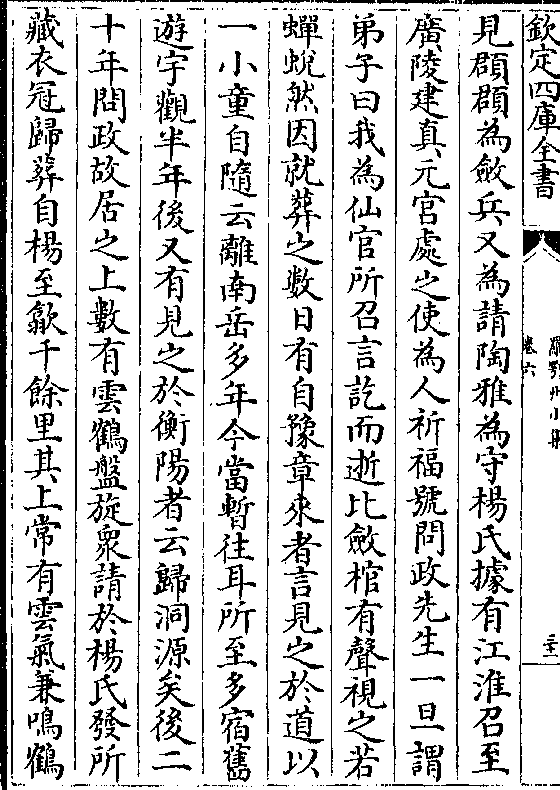 欽定四庫全書
羅鄂州小集
卷六
見頵頵為斂兵又為請陶雅為守楊氏據有江淮召至
廣陵建真元宮處之使為人祈福號問政先生一旦謂
弟子曰我為仙官所召言訖而逝比斂棺有聲視之若
蟬蛻然因就葬之數日有自豫章來者言見之於道以
一小童自隨云離南岳多年今當暫往耳所至多宿舊
遊宇觀半年後又有見之於衡陽者云歸洞源矣後二
十年問政故居之上數有雲鶴盤旋衆請於楊氏發所
藏衣冠歸葬自楊至歙千餘里其上常有雲氣兼鳴鶴